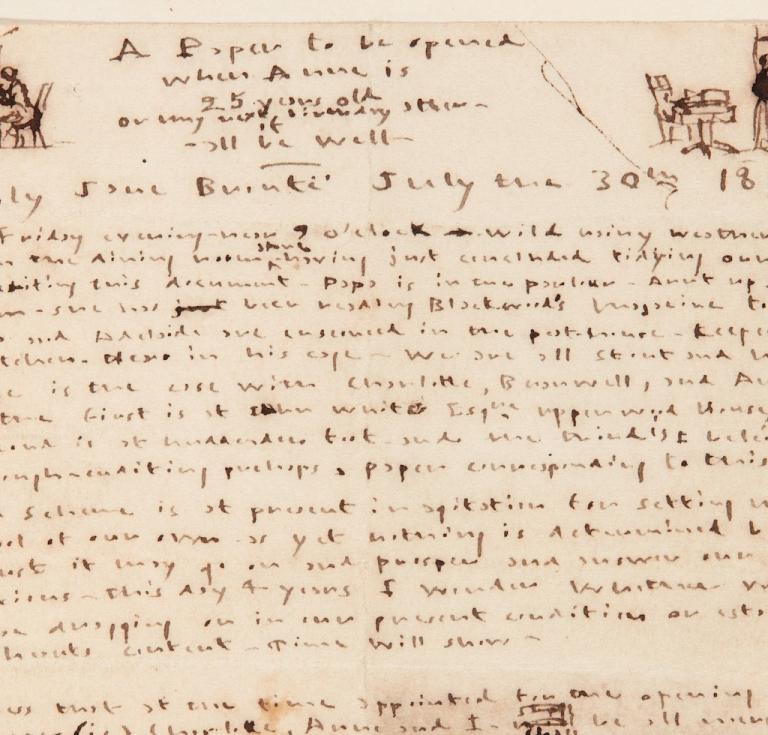 A Paper to be opened
when Anne is
25 years old
or my next birthday after—
if
—all be well—
ly Jane Brontë July the 30th 18
Friday evening—near 9 o'clock — wild rainy weather
n the dining room having just concluded tidying our
writing this document— Papa is in the parlour— Aunt up
m— she has just been reading Blackwood's Magazine to
and Adelaide are ensconced in the peat-house— Keeper
tchen— Hero in his cage— We are all stout and h
e is the case with Charlotte, Branwell, and An
the first is at John White Esqre upperwood House,
cond is at Luddenden foot and the third is I beli
ough—enditing perhaps a paper corresponding to this
scheme is at present in agitation for setting u
ool of our own as yet nothing is determined b
ust it may go on and prosper and answer our
tions— This day 4—years I wonder whether w
be dragging on in our present condition or esta
hearts content— Time will show—
ess that at the time appointed for the opening
(ie) Charlotte, Anne and I— be all merr